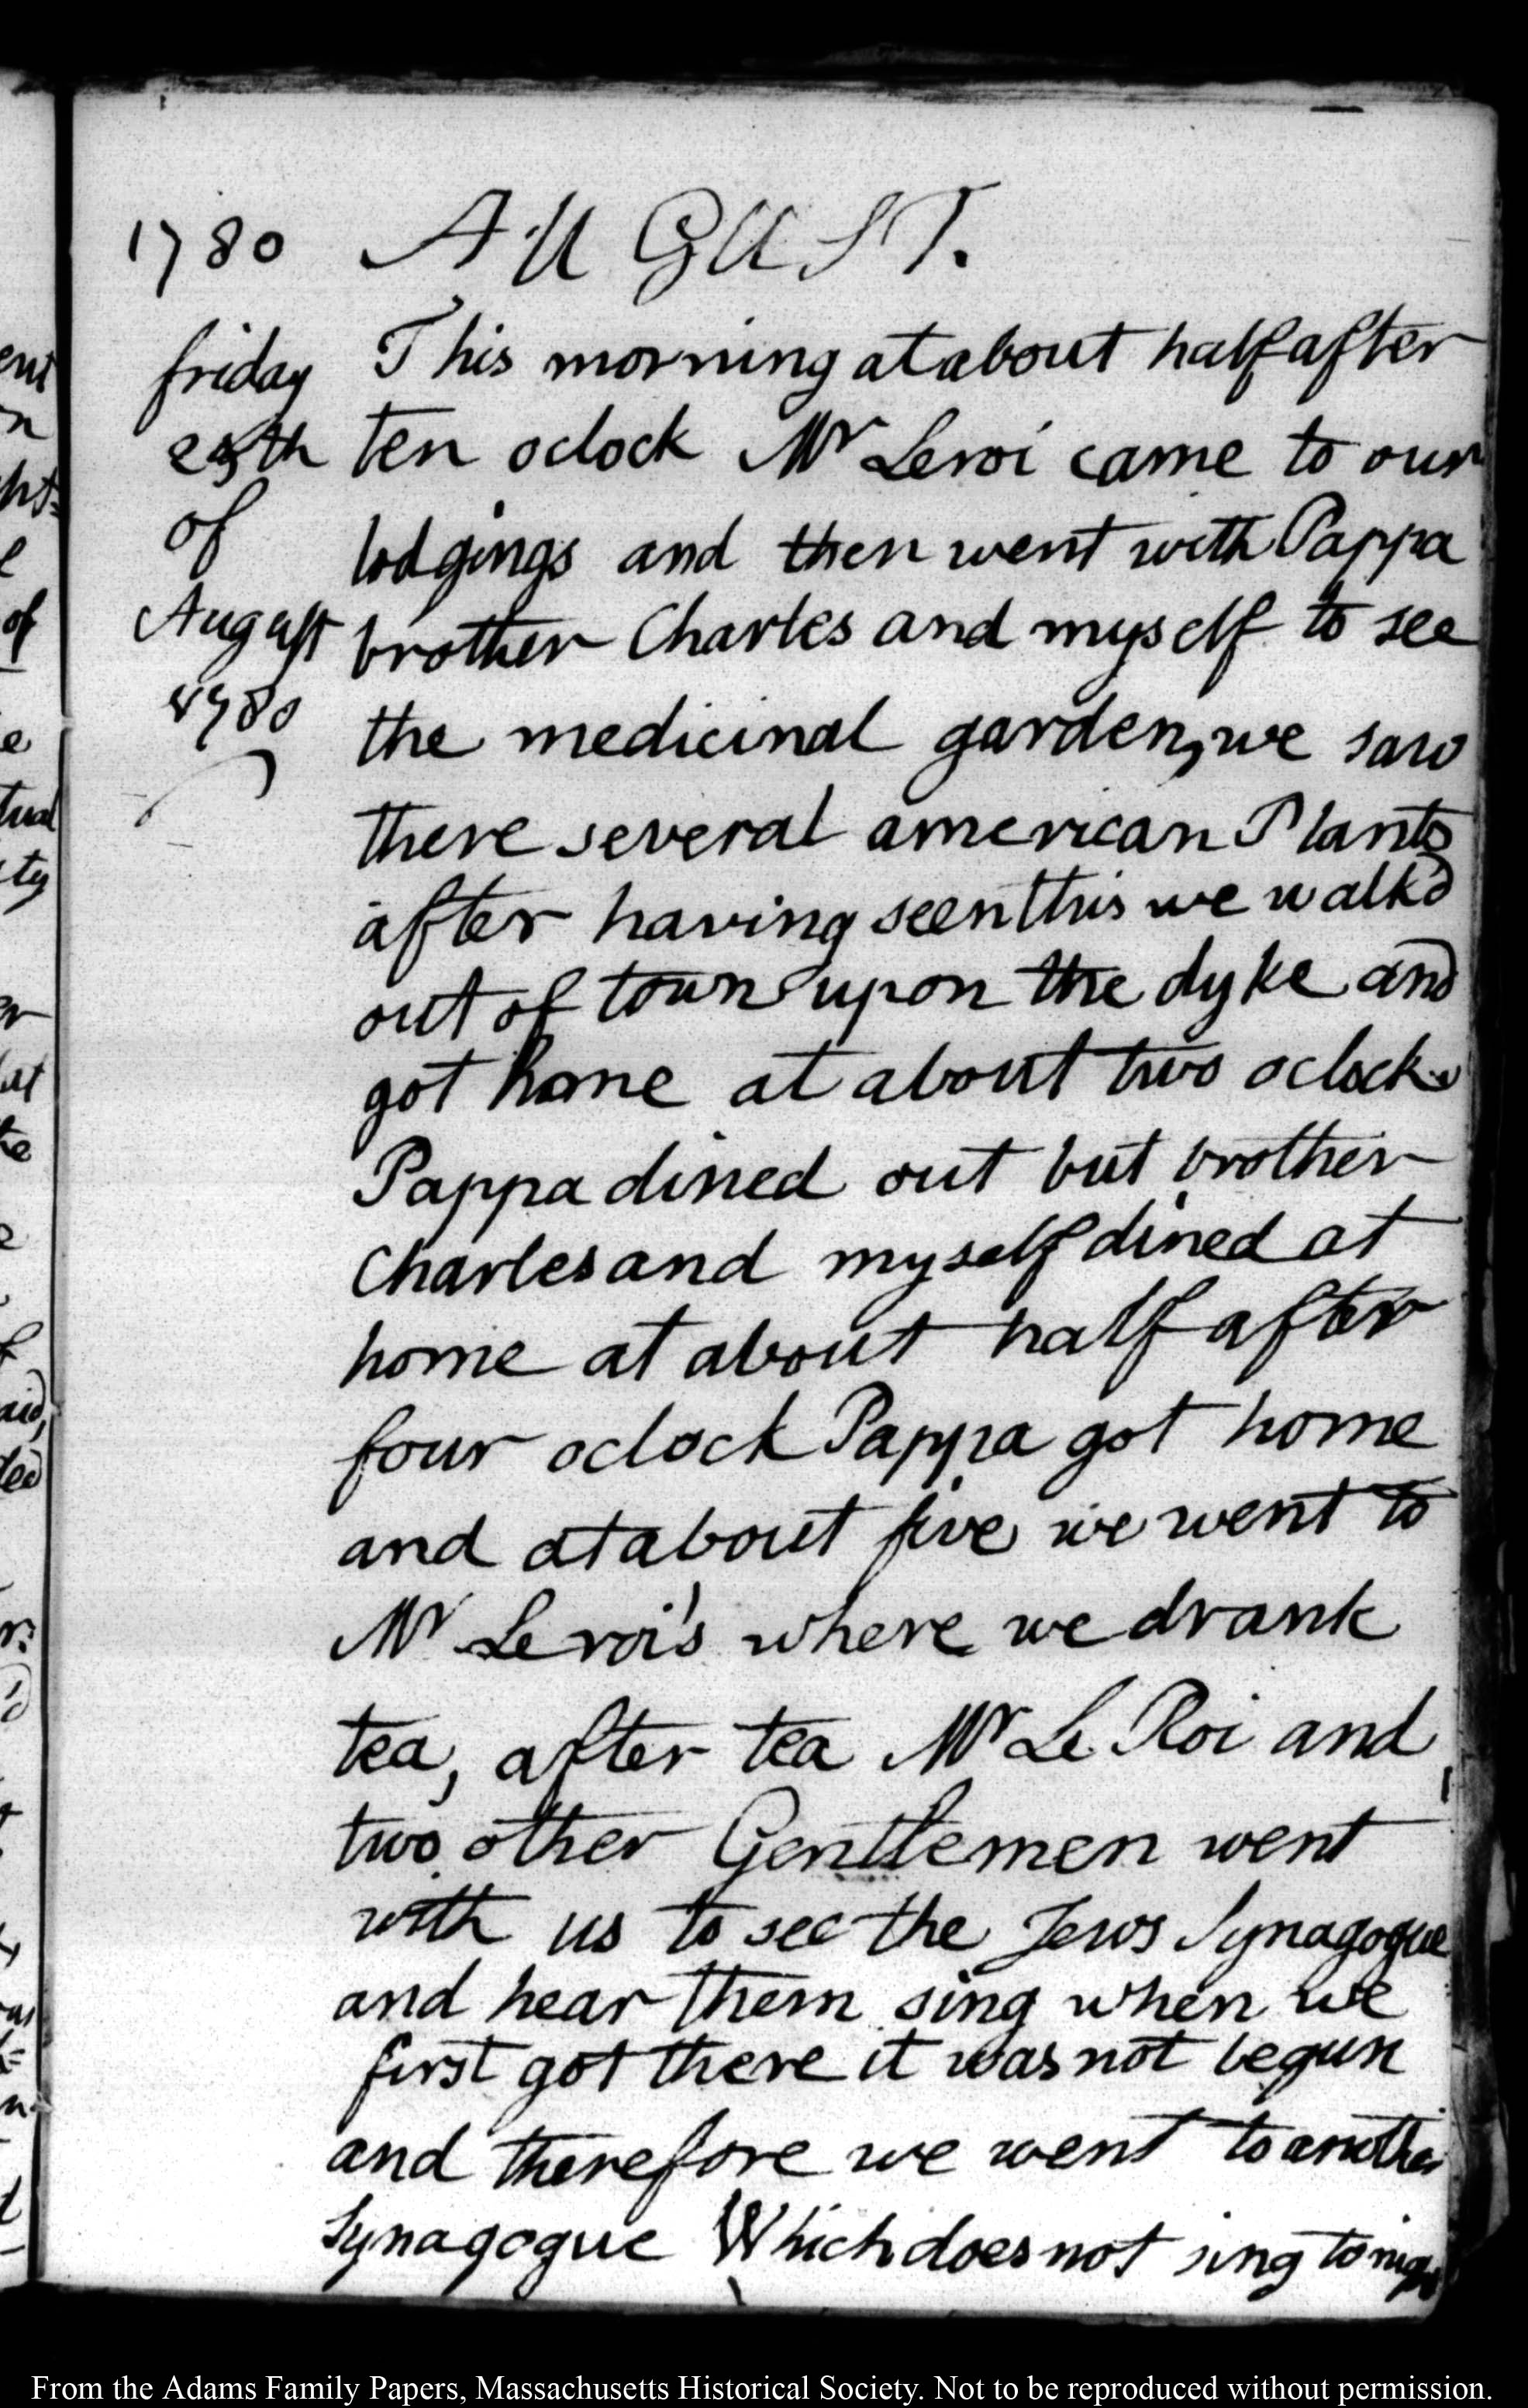 1780 AUGUST.
friday
25th
of
August
1780
This morning at about half after
ten oclock Mr Leroi came to our
lodgings and then went with Pappa
brother Charles and myself to see
the medicinal garden, we saw
there several american Plants
after having seen this we walk'd
out of town upon the dyke and
got home at about two oclock.
Pappa dined out but brother
Charles and myself dined at
home at about half after
four oclock Pappa got home
and at about five we went to
Mr Leroi's where we drank
tea, after tea Mr Le Roi and
two other Gentlemen went
with us to see the Jews Synagogue
and hear them sing when we
first got there it was not begun
and therefore we went to another
Synagogue Which does not sing to
From the Adams Family Papers, Massachusetts Historical Society. Not to be reproduced without permission.